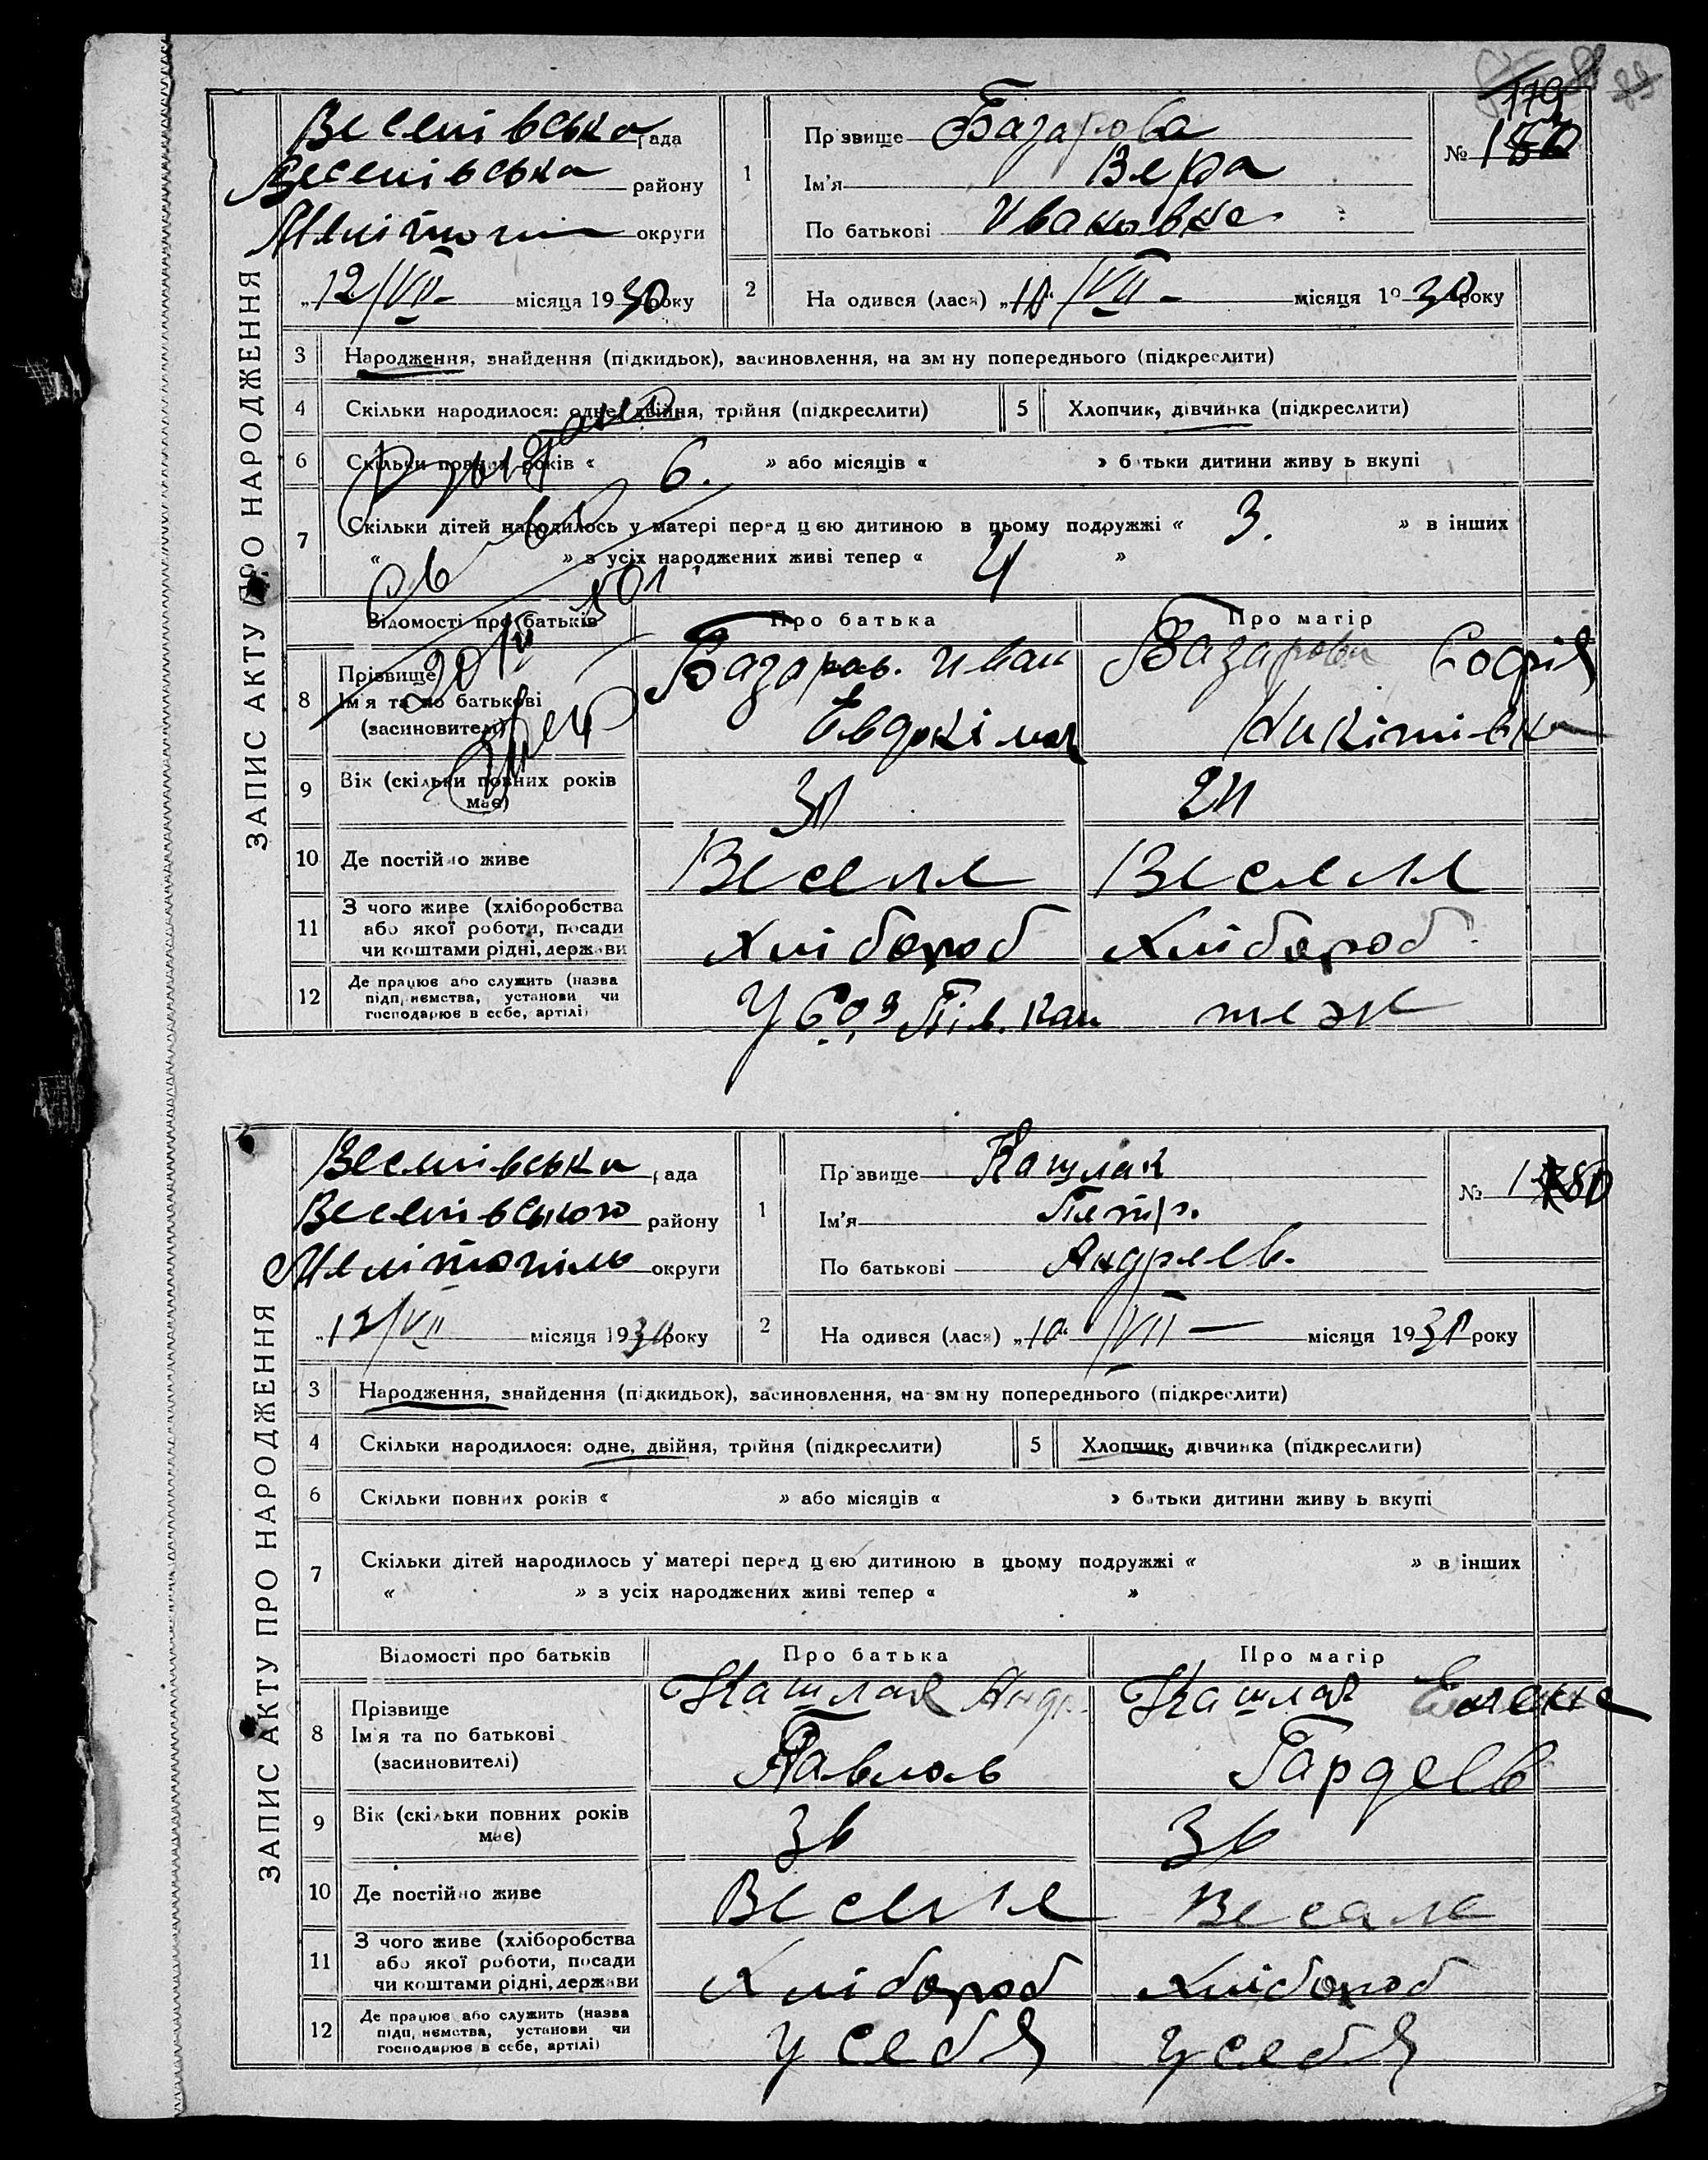 ЗАПИС АКТУ ПРО НАРОДЖЕННЯ
Веселівська рада
Веселівська району
Меліптопіль округи
„12/VII місяця 1930 року
1
Прізвище Базарова
Ім'я Вера
По батькові Ивановна
№ 179
2
Народився (лася) „10“ /VII місяця 1930 року
3 Народження, знайдення (підкидьок), засиновлення, на зміну попереднього (підкреслити)
4 Скільки народилося: одне, двійня, трійня (підкреслити)
5 Хлопчик, дівчинка (підкреслити)
6 Скільки повних років « 6. » або місяців « » батьки дитини живуть вкупі
7 Скільки дітей народилось у матері перед цією дитиною в цьому подружжі « 3. » в інших
« » з усіх народжених живі тепер « 4 »
Відомості про батьків Про батька Про матір
8 Прізвище Ім'я та по батькові (засновителі)
Базаров. Иван Базарова Софія
Евдокімов Никітівна
9 Вік (скільки повних років має) 31 24
10 Де постійно живе Веселе Веселе
11 З чого живе (хліборобства або якої роботи, посади чи коштами рідні, держави Хлібороб Хлібороб
12 Де працює або служить (назва підприємства, установи чи господарює в себе, артілі) теж
ЗАПИС АКТУ ПРО НАРОДЖЕННЯ
Веселівська рада
Веселівського району
Мелітопіль округи
„12/VII місяця 1930 року
1
Прізвище Кашлак
Ім'я Петр.
По батькові Андреев.
№ 180
2
Народився (лася) „10“ /VII — місяця 1930 року
3 Народження, знайдення (підкидьок), засиновлення, на зміну попереднього (підкреслити)
4 Скільки народилося: одне, двійня, трійня (підкреслити)
5 Хлопчик, дівчинка (підкреслити)
6 Скільки повних років « » або місяців « » батьки дитини живуть вкупі
7 Скільки дітей народилось у матері перед цією дитиною в цьому подружжі « » в інших
« » з усіх народжених живі тепер « »
Відомості про батьків Про батька Про матір
8 Прізвище Ім'я та по батькові (засиновителі)
Кашлак Андр. Кашлак
Павлов Гардеев
9 Вік (скільки повних років має) 36 36
10 Де постійно живе Веселе Веселе
11 З чого живе (хліборобства або якої роботи, посади чи коштами рідні, держави Хлібороб Хлібороб
12 Де працює або служить (назва підприємства, установи чи господарює в себе, артілі) у себя у себя